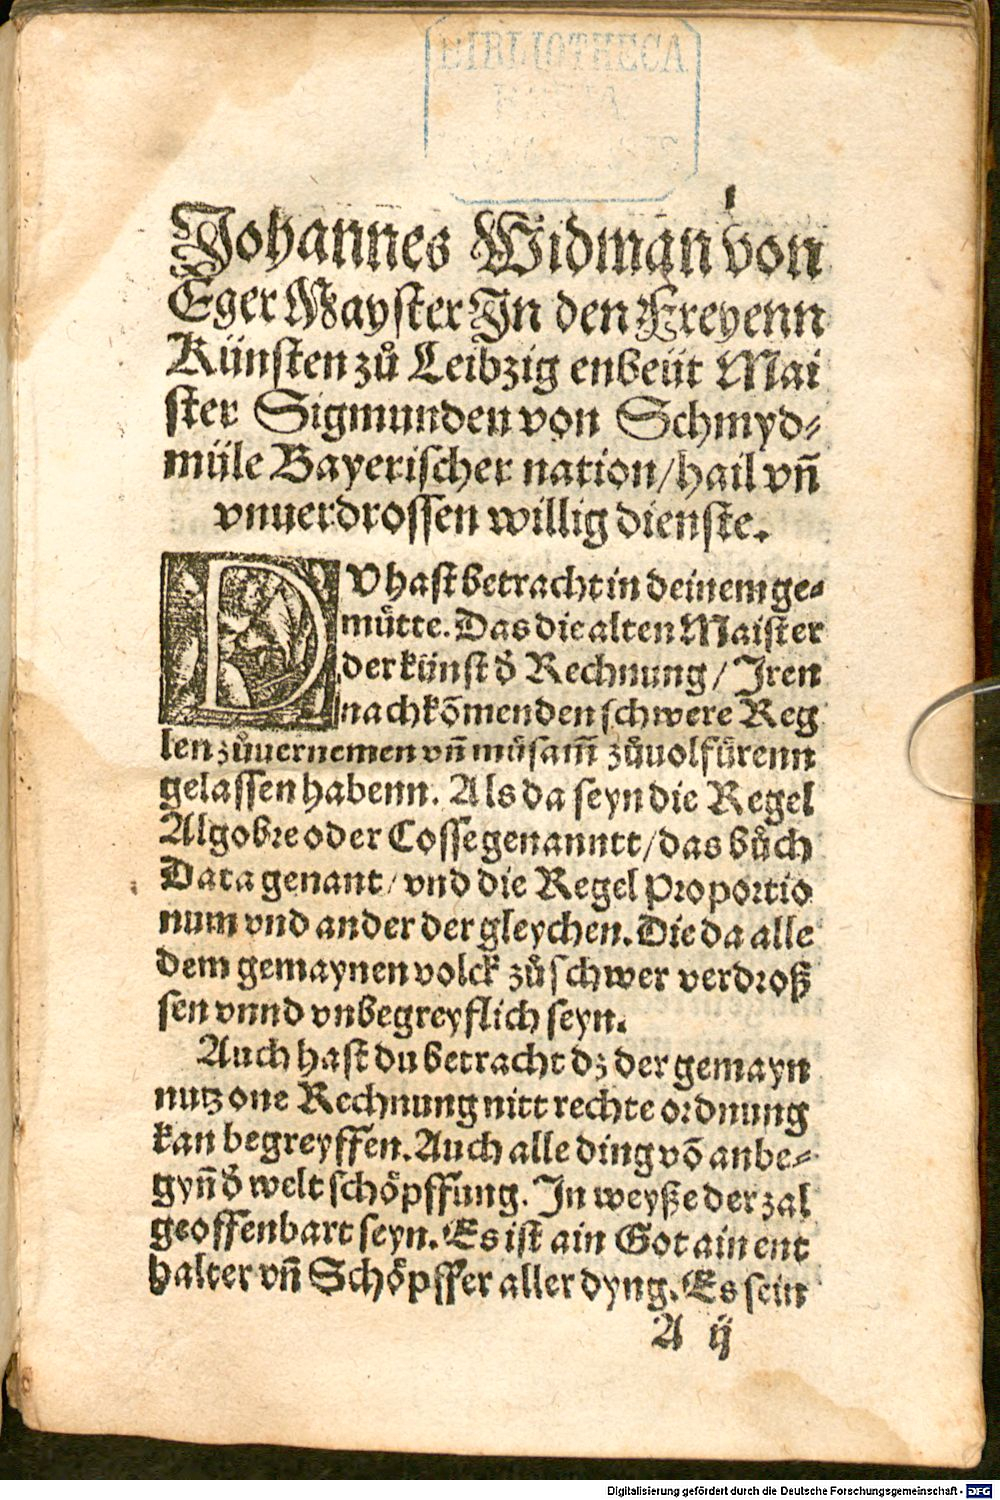 BIBLIOTHECA
REGIA
Johannes Widman von
Eger Mayster In den Freyenn
Künsten zů Leibzig enbeüt Mai
ster Sigmunden von Schmyd⸗
müle Bayerischer nation/ hail vn̄
vnuerdrossen willig dienste.
DV hast betracht in deinem ge⸗
mütte. Das die alten Maister
der künst d̕ Rechnung / Iren
nachkōmenden schwere Reg
len zůuernemen vn̄ müsam̄ zůuolfürenn
gelassen habenn. Als da seyn die Regel
Algobre oder Cosse genanntt/ das bůch
Data genant/ vnd die Regel Proportio
num vnd ander der gleychen. Die da alle
dem gemaynen volck zů schwer verdroß
sen vnnd vnbegreyflich seyn.
Auch hast du betracht dz der gemayn
nutz one Rechnung nitt rechte ordnung
kan begreyffen. Auch alle ding vō anbe⸗
gyn̄ d̕ welt schöpffung. In weyße der zal
geoffenbart seyn. Es ist ain Got ain ent
halter vn̄ Schöpffer aller dyng. Es sein
A ij
Digitalisierung gefördert durch die Deutsche Forschungsgemeinschaft - DFG